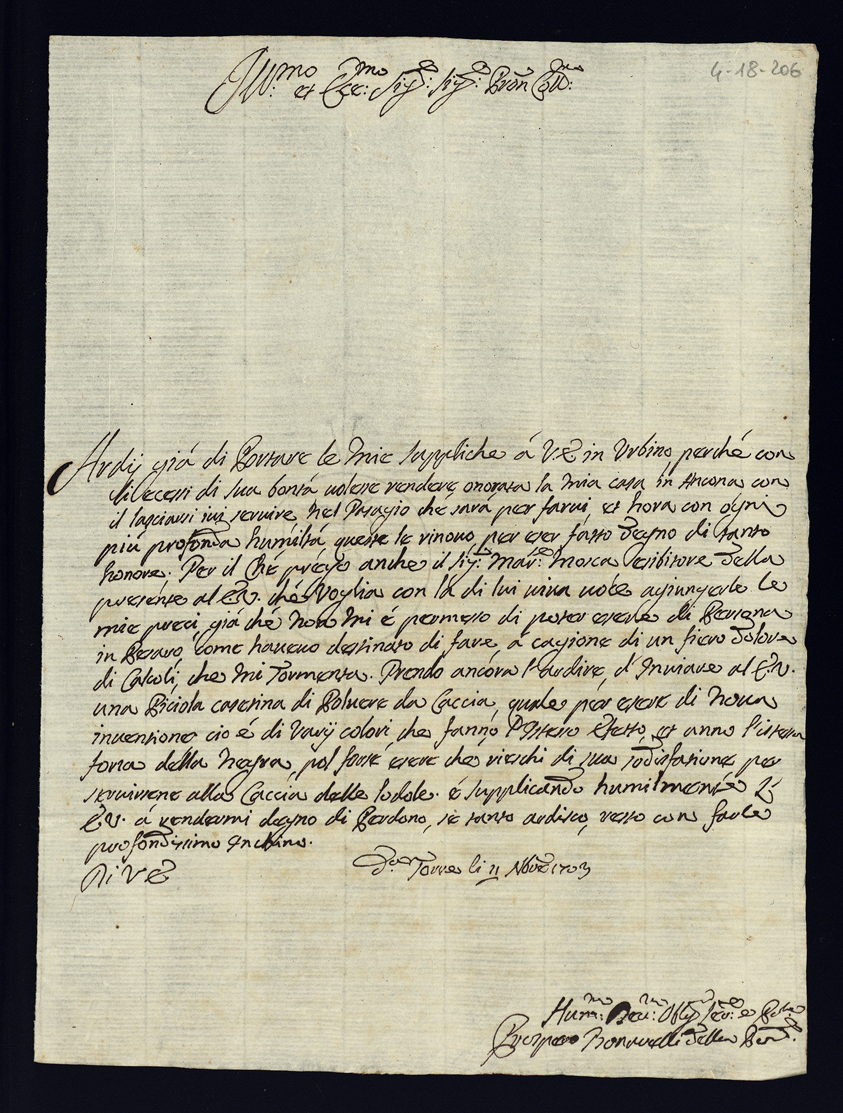 4-18-206
Ill:mo et Ecc:mo Sig:e Sig:e Pron Coll:mo
Ardij già di Portare le Mie suppliche á V.E in Urbino perché con
li ecessi di sua bontá volesse rendere onorata la Mia casa in Ancona con
il lasciarsi ivi servire nel Pasagio che sará per farvi, et hora con ogni
piú profonda humiltá queste le rinovo, per eser fatto degno di tanto
honore. Per il Ché prego anche il Sig: Mar: Mosca esibitore della
presente al E.V. ché Voglia con la di lui viva voce agiungerle le
mie preci giá ché Non Mi é permesso di poter esere di Persona
in Pesaro, come havevo destinato di fare, á cagione di un fiero dolore
di Calcoli, che Mi Tormenta. Prendo ancora l'ardire, d'Inviare al E.V.
una Piciola casetina di Polvere da Caccia, quale per esere di Nova
inventione, cio é di Varij colori che fanno l'Istesso Efetto, et anno l'istessa
forza della Negra, pol forse esere che rieschi di sua sodisfatione per
servirsene alla Caccia delle lodole. é supplicando humilmente l'
E.V. á rendermi degno di Perdono, sé tanto ardisco, resto con farle
profondissimo Inchino.
Di V E Torre li 11 Nov:e 1703
Hum:mo Dev:mo Obl:mo Ser:e
Prospero Bonarelli della